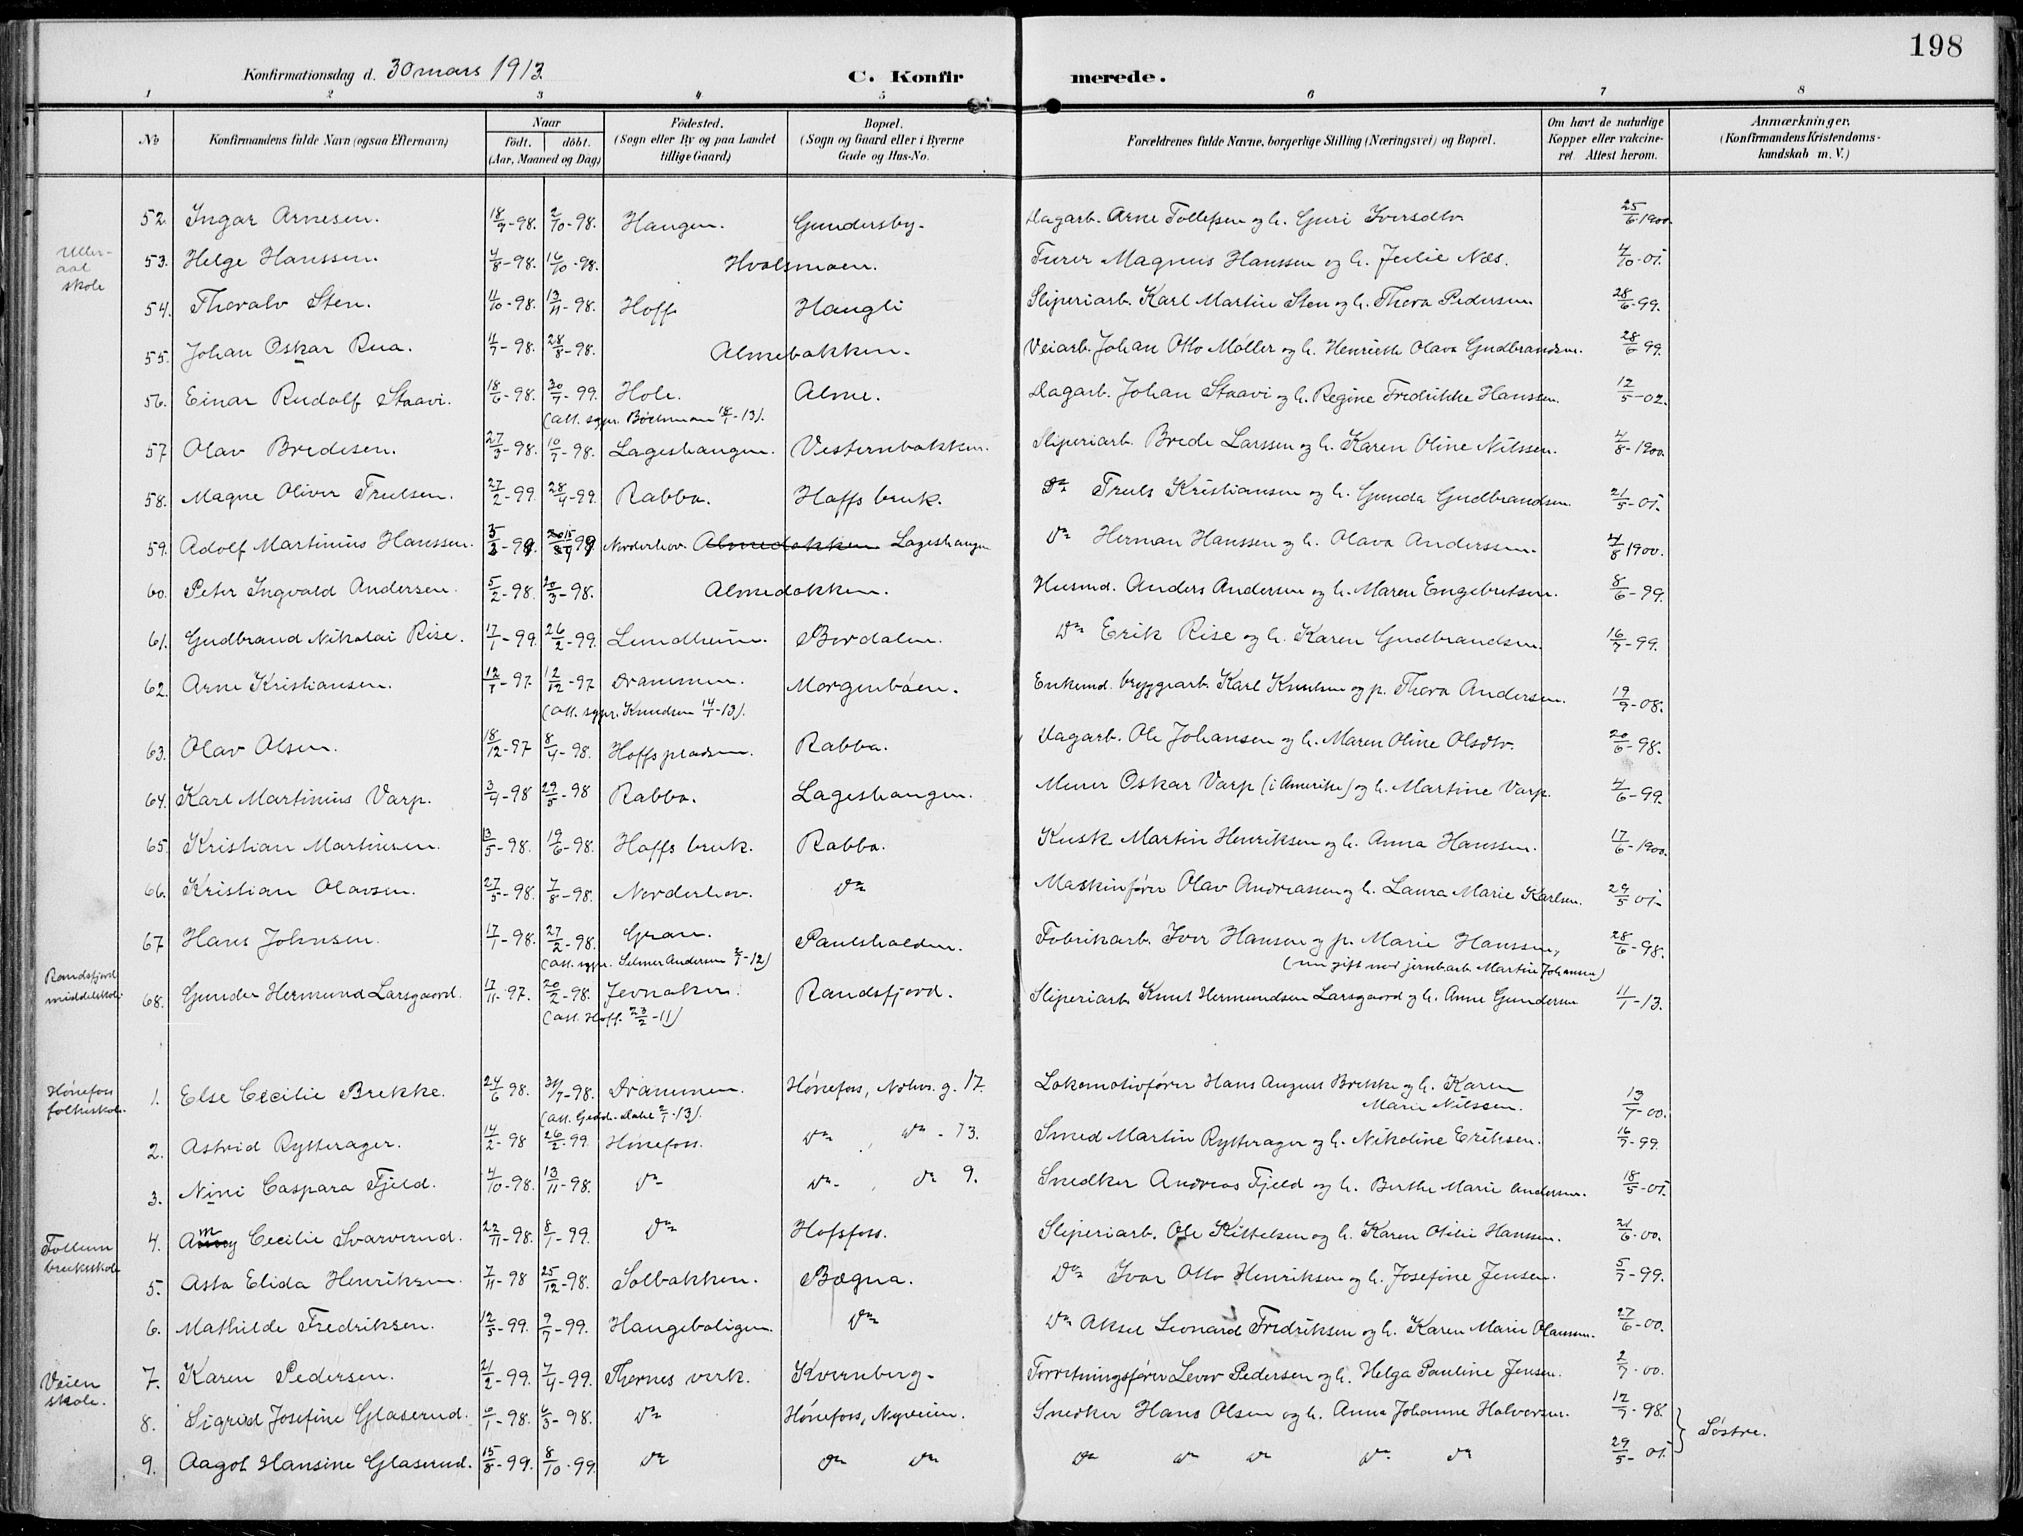 198
Konfirmationsdag d. 30 mars 1913.
C. Konfirmerede.
1 2 3 4 5 6 7 8
No Konfirmandens fulde Navn (ogsaa Efternavn) Naar født. døbt. (Aar, Maaned og Dag) Fødested. (Sogn eller By og paa Landet tillige Gaard) Bopæl. (Sogn og Gaard eller i Byerne Gade og Hus-No. Forældrenes fulde Navne, borgerlige Stilling (Næringsvei) og Bopæl. Om havt de naturlige Kopper eller vakcineret. Attest herom. Anmærkninger. (Konfirmandens Kristendomskundskab m. V.)
52. Ingar Arnesen. 18/9-98. 2/10-98. Haugen. Gundersby. Dagarb. Arne Tollefsen og h. Guri Iversdtr. 25/6 1900.
Ulleraal skole
53. Helge Hanssen. 4/8-98. 16/10-98. Hvalsmoen. Furer Magnus Hanssen og h. Julie Næs. 4/10-01.
54. Thoralv Sten. 4/10-98. 13/11-98. Hoff. Haugli Sliperiarb. Karl Martin Sten og h. Thora Pedersen. 28/6-99.
55. Johan Oskar Rua. 11/7-98. 28/8-98. Almebakken. Veiarb. Johan Otto Møller og h. Henriette Olava Gudbrandsen. 28/6 99.
56. Einar Rudolf Staavi. 18/6-98. 30/7-99. Hole. Alme. Dagarb. Johan Staavi og h. Regine Fredrikke Hanssen. 12/5-02.
57. Olav Bredesen. 27/3-98. 10/7-98. Lageshaugen. Vesternbakken. Sliperiarb. Brede Larssen og h. Karen Oline Nilssen. 4/8-1900.
58. Magne Oliver Trulsen. 27/2-99. 28/4-99. Rabba. Hoffs bruk. Do Truls Kristiansen og h. Gunda Gudbrandsen. 21/5-01.
59. Adolf Martinius Hanssen. Norderhov. Almebakken Lageshaugen Do Herman Hanssen og h. Olava Anderssen. 4/8 1900.
60. Peter Ingvald Andersen. 5/2-98. 20/3-98. Almebakken. Husmd. Anders Andersen og h. Maren Engebretsen. 8/6-99.
61. Gudbrand Nikolai Rise. 17/1-99. 26/2-99. Lundheim. Bordalen. Do Erik Rise og h. Karen Gudbrandsen. 16/7-99.
62. Arne Kristiansen. 12/7-97. 12/12-97. Drammen. Morgenbøen. Enkemd. bryggearb. Karl Knudsen og p. Thora Andersen. 19/9-08.
(att. sgpr. Knudsen 14/1-13).
63. Olav Olsen. 18/12-97 8/4-98. Hoffspladsen. Rabba. Dagarb. Ole Johansen og h. Maren Oline Olsdtr. 20/6-98.
64. Karl Martinius Varp. 3/4-98 29/5-98 Rabba. Lageshaugen. Murer Oskar Varp (i Amerika) og h. Martine Varp. 4/6-99.
65. Kristian Martinsen. 13/5-98. 19/6-98. Hoffs bruk. Rabba. Kusk Martin Henriksen og h. Anna Hanssen. 17/6-1900.
66. Kristian Olavsen. 27/5-98. 7/8-98. Norderhov. Do Maskinfører Olav Andreassen og h. Laura Marie Karlsen. 29/5 01.
67. Hans Johnsen. 17/1-98. 27/2-98. Gran. Paulshalden. Fabrikarb. Iver Hansen og p. Marie Hanssen, 28/6-98.
(att. sgpr. Selmer Andersen 2/1-12) (nu gift med jernbarb. Martin Johansen)
Randsfjord middelskole
68. Gunder Hermund Larsgaard. 17/11-97. 20/2-98. Jevnaker. Randsfjord. Sliperiarb. Knut Hermundsen Larsgaard og h. Anne Gundersen 11/1-13.
(att. Hoff. 23/2-11)
Hønefoss folkeskole.
1. Else Cecilie Brekke. 24/6 98. 31/7-98. Drammen. Hønefoss, Nohvs. g. 17. Lokomotivfører Hans August Brekke og h. Karen Marie Nilssen. 13/7-00.
2. Astrid Rytterager. 14/2-98 26/2-99 Hønefoss. Do, Do - 73. Smed Martin Rytterager og h. Nikoline Eriksen. 16/7-99.
3. Nini Caspara Fjeld. 4/10-98. 13/11-98. Do Do, Do 9. Snedker Andreas Fjeld og h. Berthe Marie Andersen. 18/5-01.
Follum bruksskole
4. Cecilie Svarverud. 22/11-98. 8/1-99. Do Hofsfoss. Sliperiarb. Ole Kittelsen og h. Karen Otilie Hanssen. 21/6-00.
5. Asta Elida Henriksen. 7/11-98 25/12-98. Solbakken. Bægna. Do Ivar Otto Henriksen og h. Josefine Jensen. 5/7-99.
6. Mathilde Fredriksen. 12/5-99. 9/7-99. Haugeboligen. Do Do Aksel Leonard Fredriksen og h. Karen Marie Olaussen. 27/6-00.
Veien skole.
7. Karen Pedersen. 21/2-99. 7/4-99. Thornes verk. Kvernberg. Forretningsfører Lever Pedersen og h. Helga Pauline Jensen. 2/7-00.
8. Sigrid Josefine Glaserud. 6/1-98. 6/3-98. Do Hønefoss, Nyveien. Snedker Hans Olsen og h. Anna Johanne Halvorsen. 12/7-98.
Søstre.
9. Aagot Hansine Glaserud. 15/8-99. 8/10-99. Do Do Do Do Do Do Do Do 29/5-01.